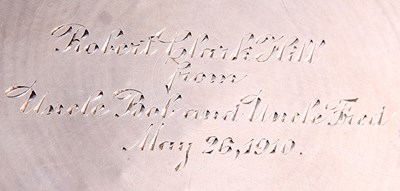 Robert Clark Hill
from
Uncle Bob and Uncle Fred
May 26, 1910.